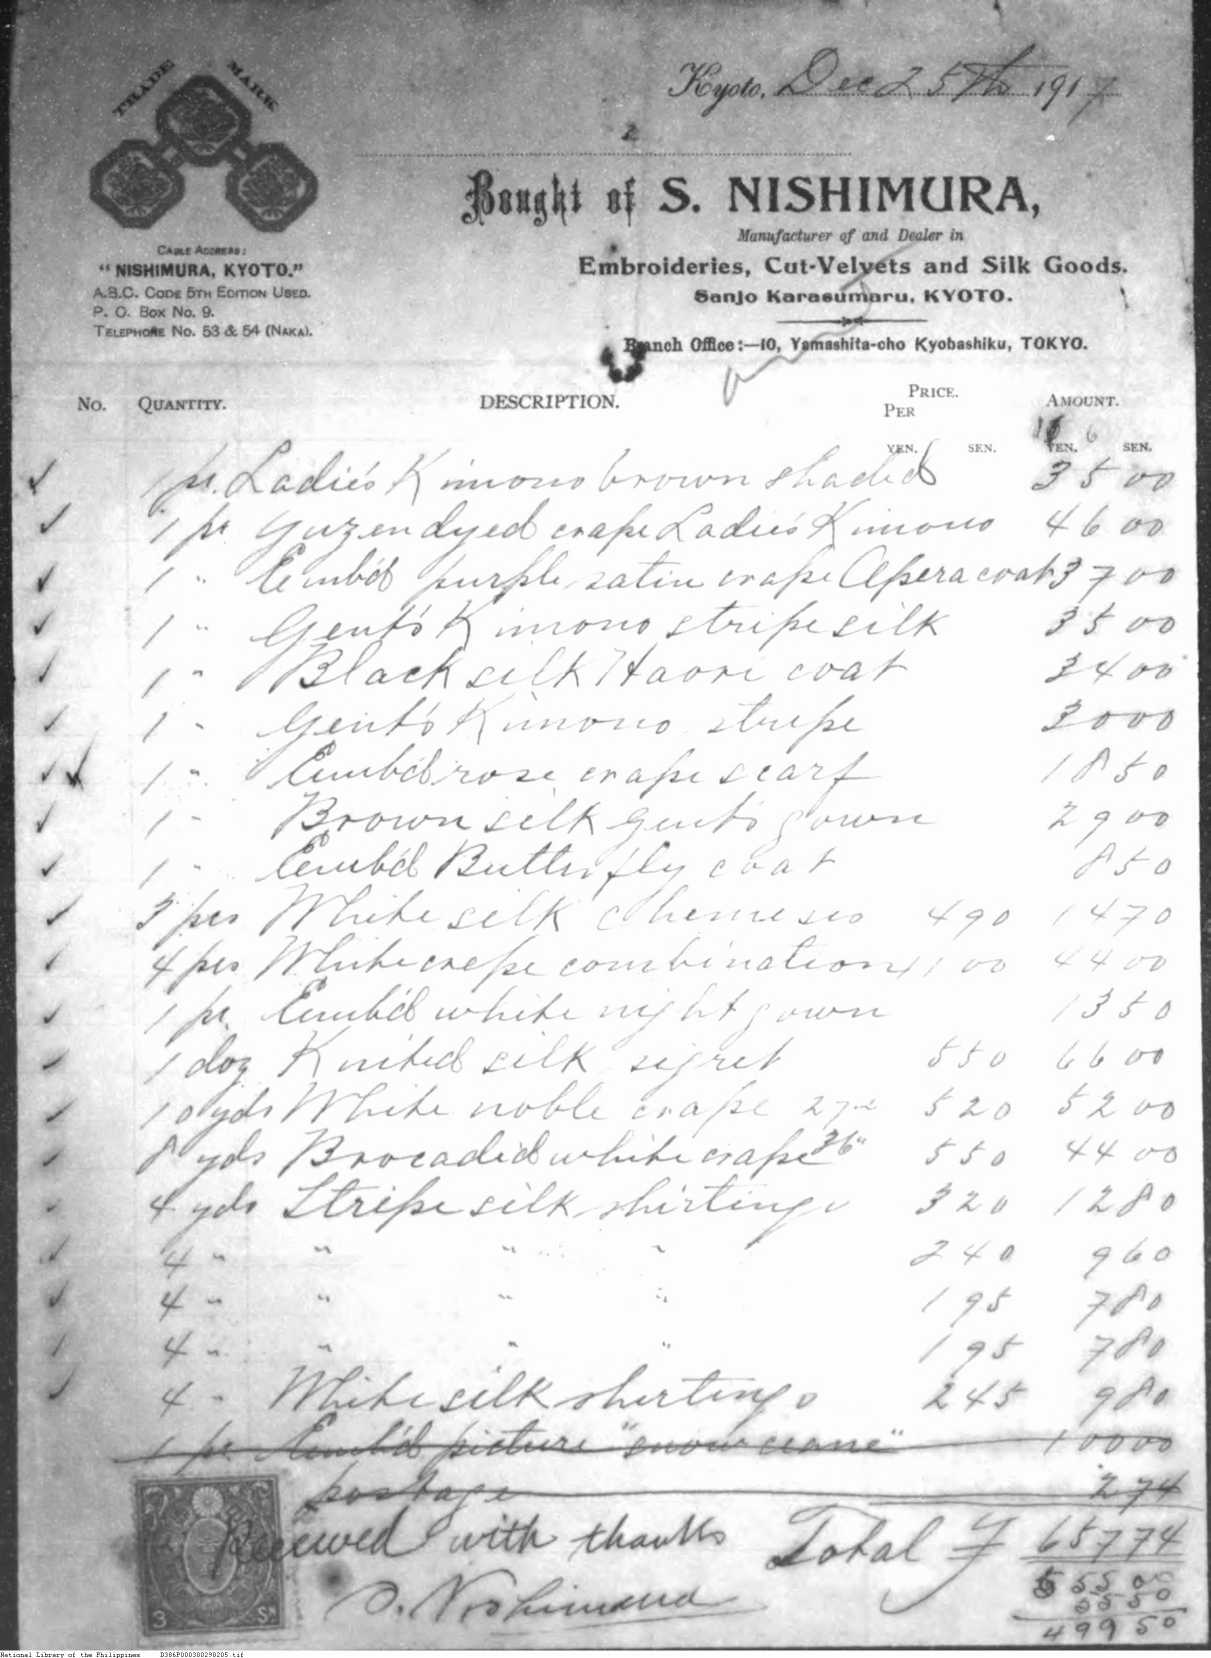 TRADE MARK
Kyoto, Dec 25th 1917
2
Bought of S. NISHIMURA,
Manufacturer of and Dealer in
Embroideries, Cut-Velvets and Silk Goods.
Sanjo Karasumaru, KYOTO.
Branch Office:—10, Yamashita-cho Kyobashiku, TOKYO.
CABLE ADDRESS:
"NISHIMURA, KYOTO."
A.B.C. CODE 5TH EDITION USED.
P. O. BOX No. 9.
TELEPHONE No. 53 & 54 (NAKA).
No. QUANTITY. DESCRIPTION. PRICE. PER AMOUNT.
YEN. SEN. YEN. SEN.
1 pr. Ladie's Kimono brown shaded 35 00
1 pr. Yuzendyed crape Ladie's Kimono 46 00
1 " Emb'd purple satin crape Opera coat 37 00
1 " Gent's Kimono stripe silk 35 00
1 " Black silk Haori coat 34 00
1 " Gent's Kimono stripe 30 00
1 " Emb'd rose crape scarf 18 50
1 " Brown silk gent's gown 29 00
1 " Emb'd Butterfly coat 8 50
3 pcs White silk chemises 4 90 14 70
4 pcs White crepe combination 11 00 44 00
1 pr. Emb'd white night gown 13 50
1 doz Knited silk 5 50 66 00
10 yds White noble crape 27 5 20 52 00
8 yds Brocaded white crape 36" 5 50 44 00
4 yds Stripe silk shirtings 3 20 12 80
4 " " " " 2 40 9 60
4 " " " " 1 95 7 80
4 " " " " 1 95 7 80
4 " White silk shirtings 2 45 9 80
1 pr. Emb'd picture "snow crane" 100 00
postage 2 74
Received with thanks Total ¥ 657 74
555 00
55 50
499 50
S. Nishimura
3 Sn
National Library of the Philippines D386P000380298205.tif